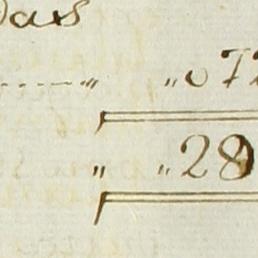 das
------„ „072
„ „28